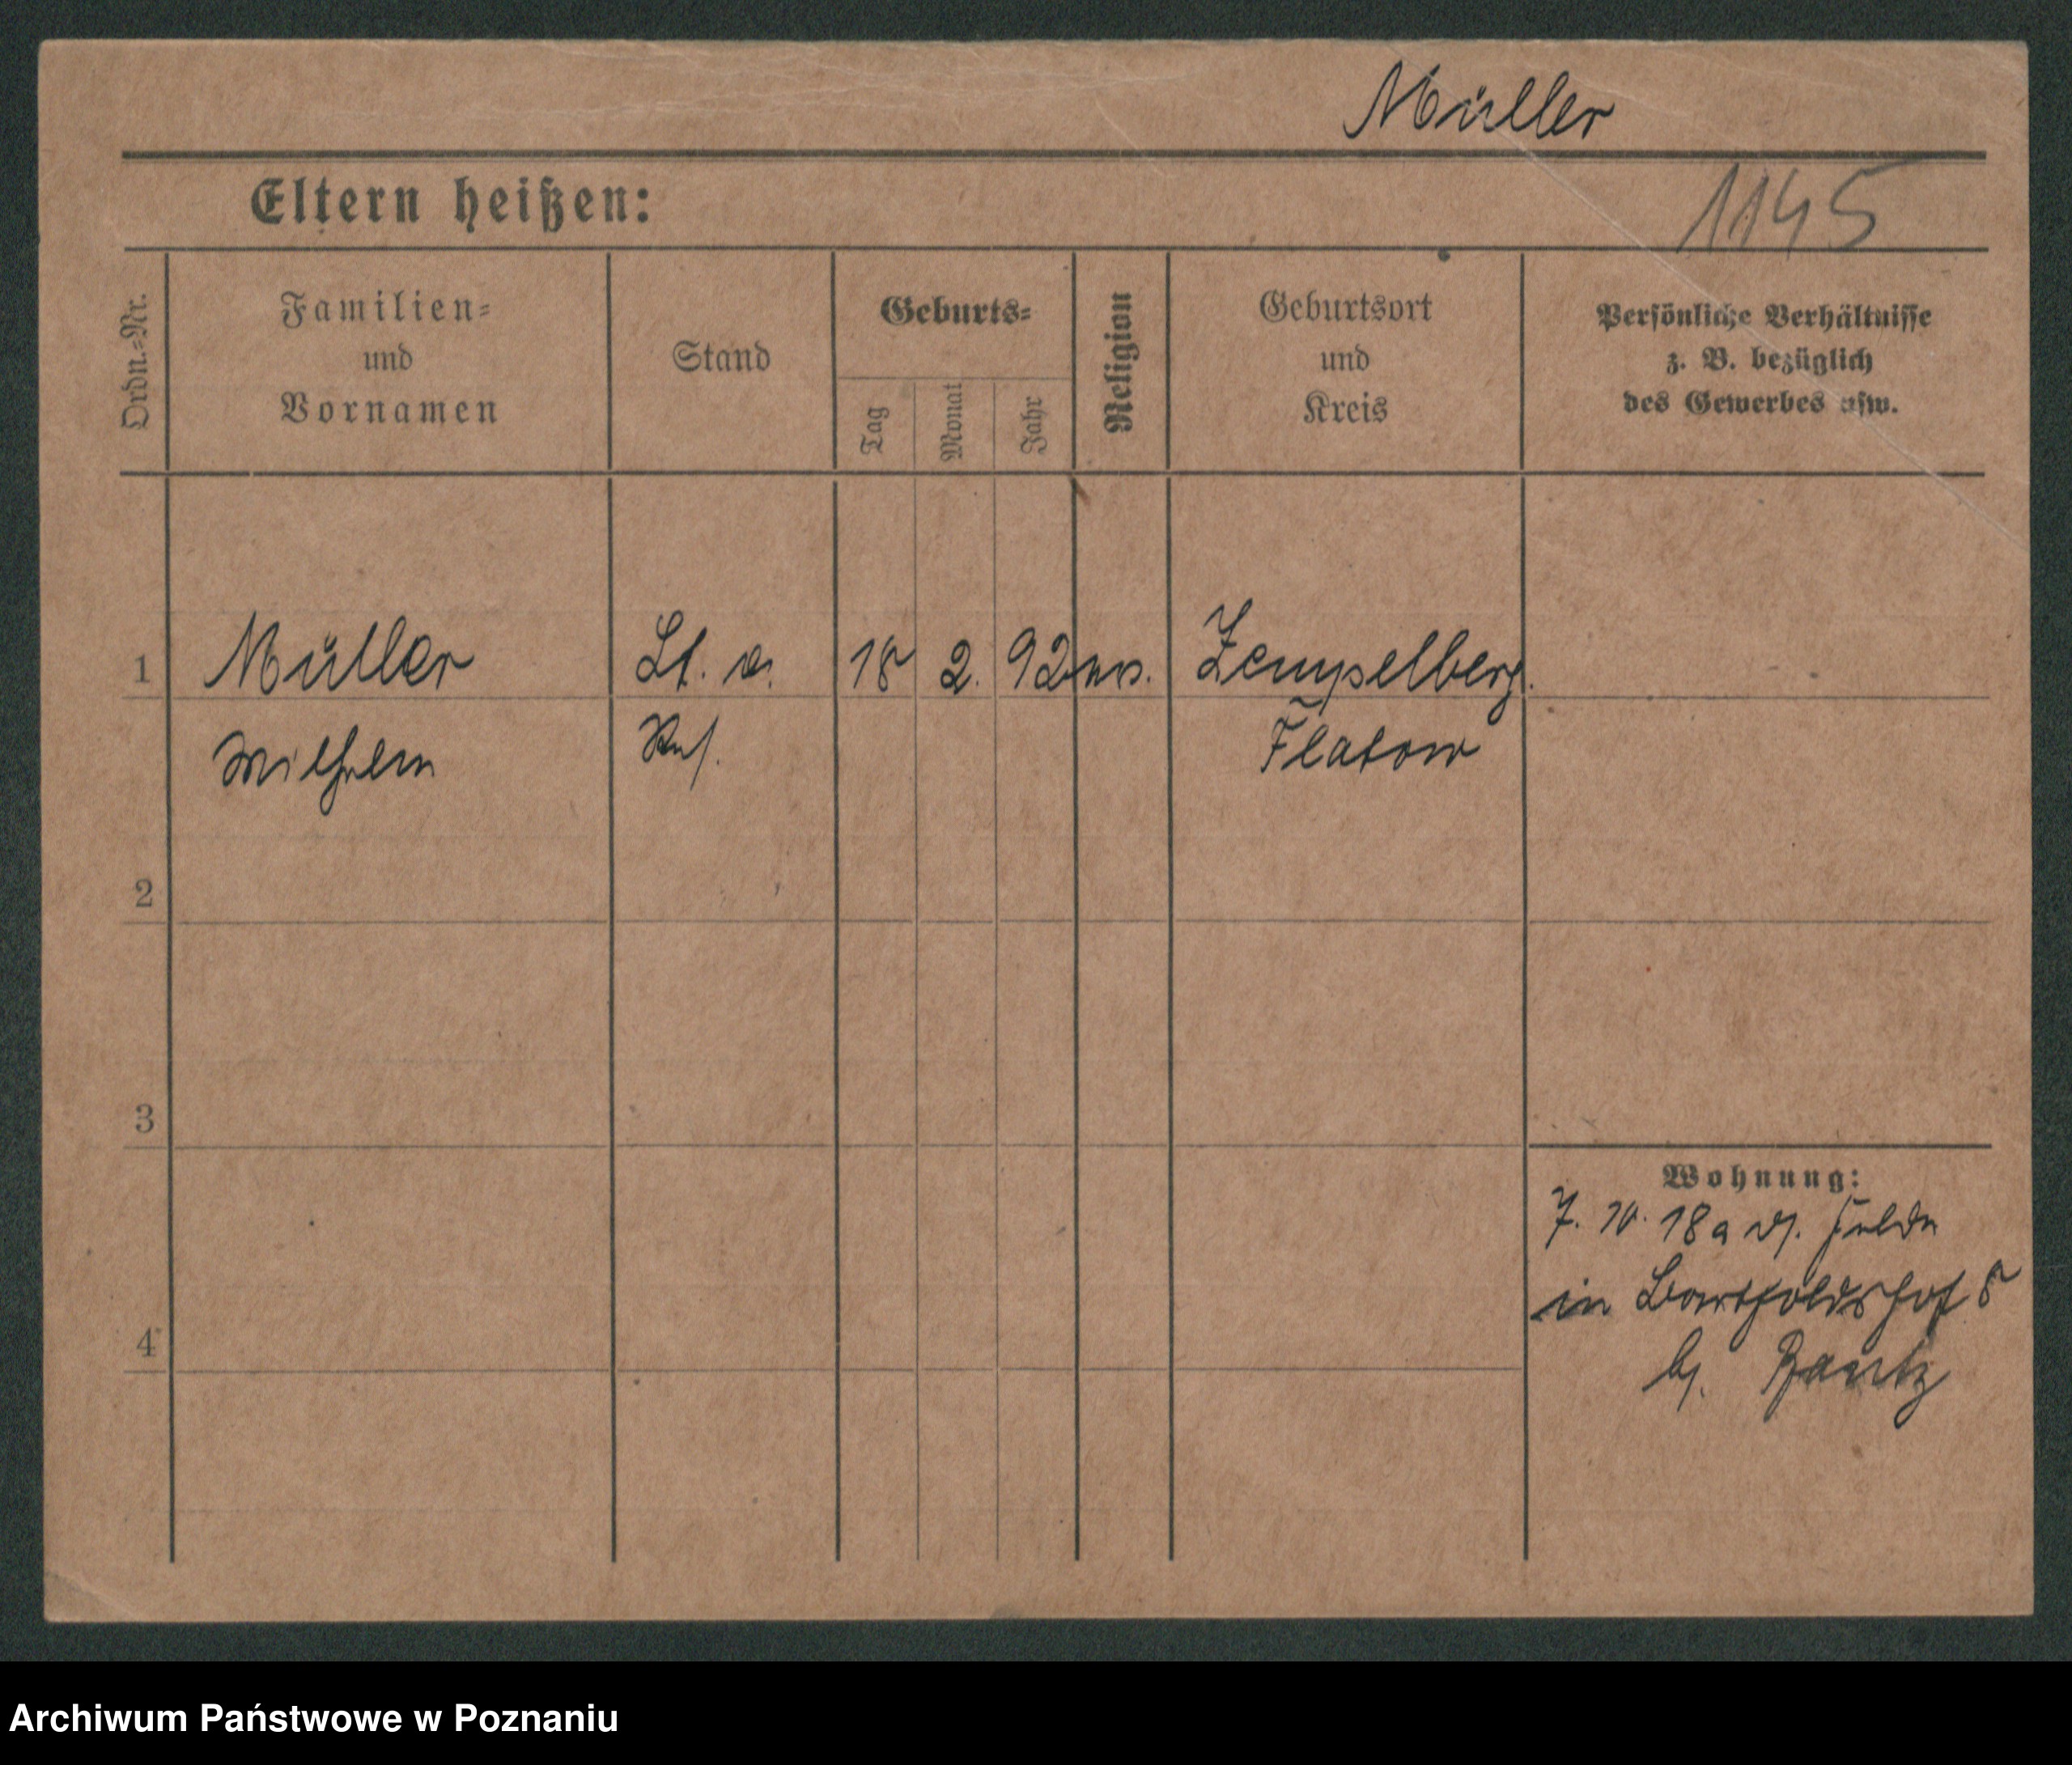 Müller
Eltern heißen:
1145
Ordn.=Nr.
Familien=
und
Vornamen
Stand
Geburts=
Tag
Monat
Jahr
Religion
Geburtsort
und
Kreis
Persönliche Verhältnisse
z. B. bezüglich
des Gewerbes usw.
1
Müller
Lt. d.
18
2.
92
Zempelberg.
Wilhelm
Res.
Flatow
2
3
4
Wohnung:
7. 10. 18 a d. Felde
in Bartholdshof 8
b.
Archiwum Państwowe w Poznaniu